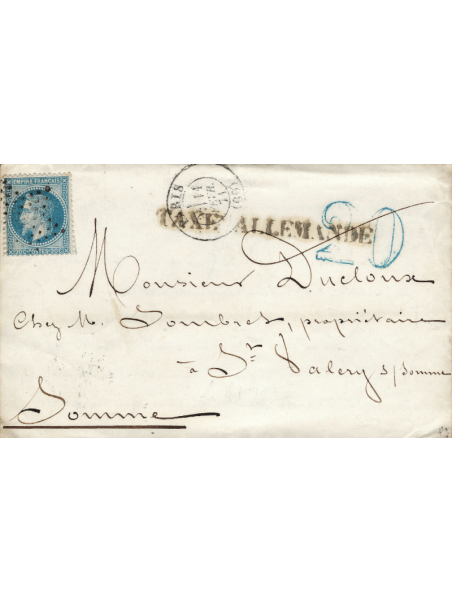 EMPIRE FRANÇAIS
PARIS (60)
TAXE ALLEMANDE
20
Monsieur Ducloux
Chez M. Sombret, propriétaire
à St Valery s/Somme
Somme